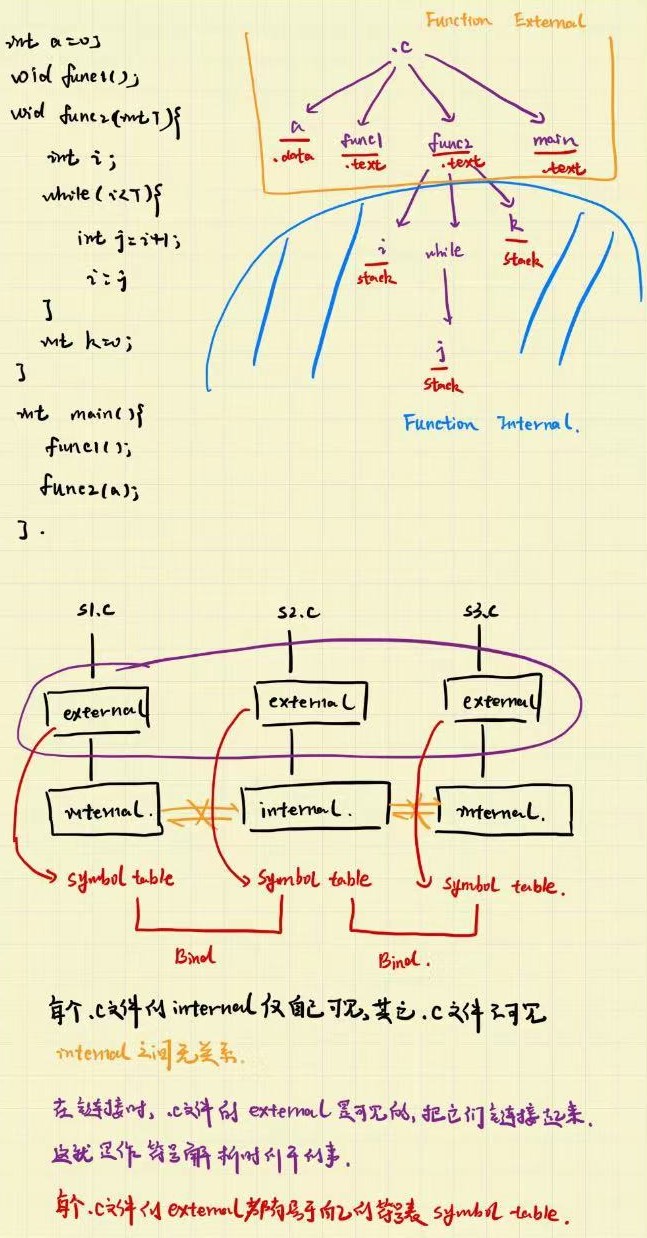 int a=0;
void func1();
void func2(int T){
int i;
while(i<T){
int j=i+1;
i=j
}
int k=0;
}
int main(){
func1();
func2(a);
}.
Function External
.c
a
.data
func1
.text
func2
.text
main
.text
i
stack
while
k
stack
j
stack
Function Internal.
s1.c
s2.c
s3.c
external
external
external
internal.
internal.
internal.
symbol table
symbol table
symbol table.
Bind
Bind.
每个.c文件的internal仅自己可见,其它.c文件不可见
internal之间无关系.
在链接时,.c文件的external是可见的,把它们链接起来.
这就是作符号解析时的干的事.
每个.c文件的external都有易于自己的符号表 symbol table.